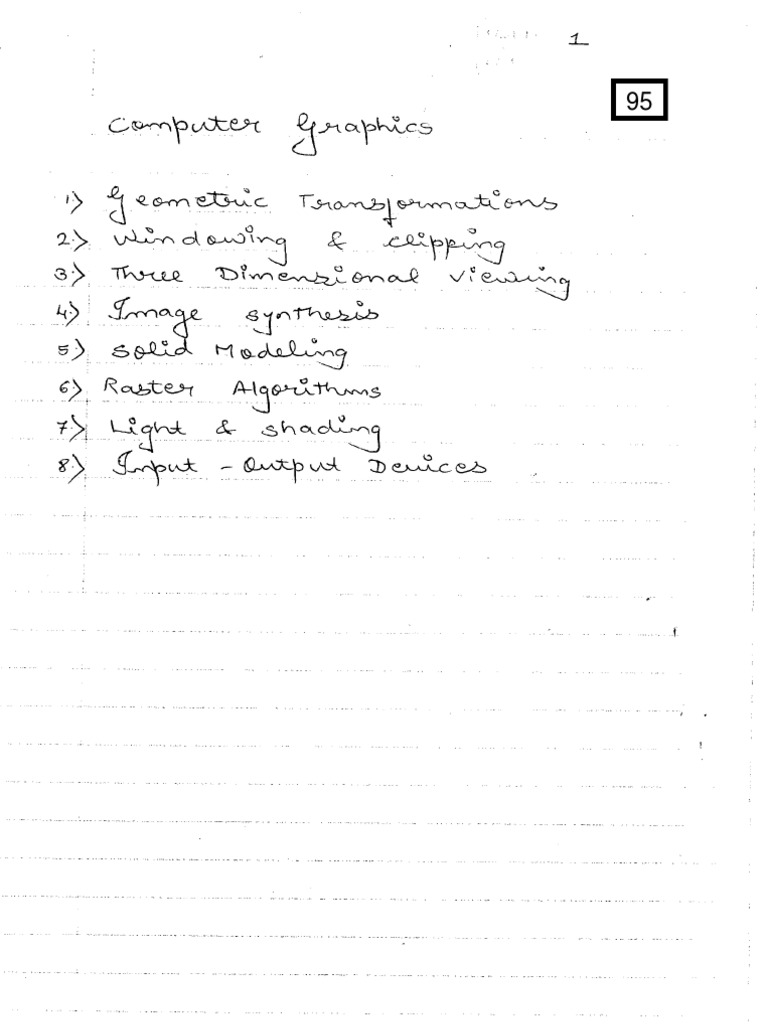 1
95
Computer Graphics
1.) Geometric Transformations
2.) Windowing & Clipping
3.) Three Dimensional Viewing
4.) Image Synthesis
5.) Solid Modeling
6.) Raster Algorithms
7.) Light & Shading
8.) Input - Output Devices